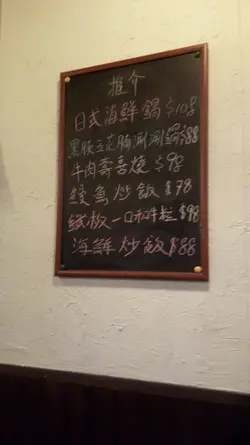 推介
日式海鮮鍋 $108
黑豚五花腩涮涮鍋$88
牛肉壽喜燒 $98
鰻魚炒飯 $78
鐵板一口和牛粒 $98
海鮮炒飯 $88